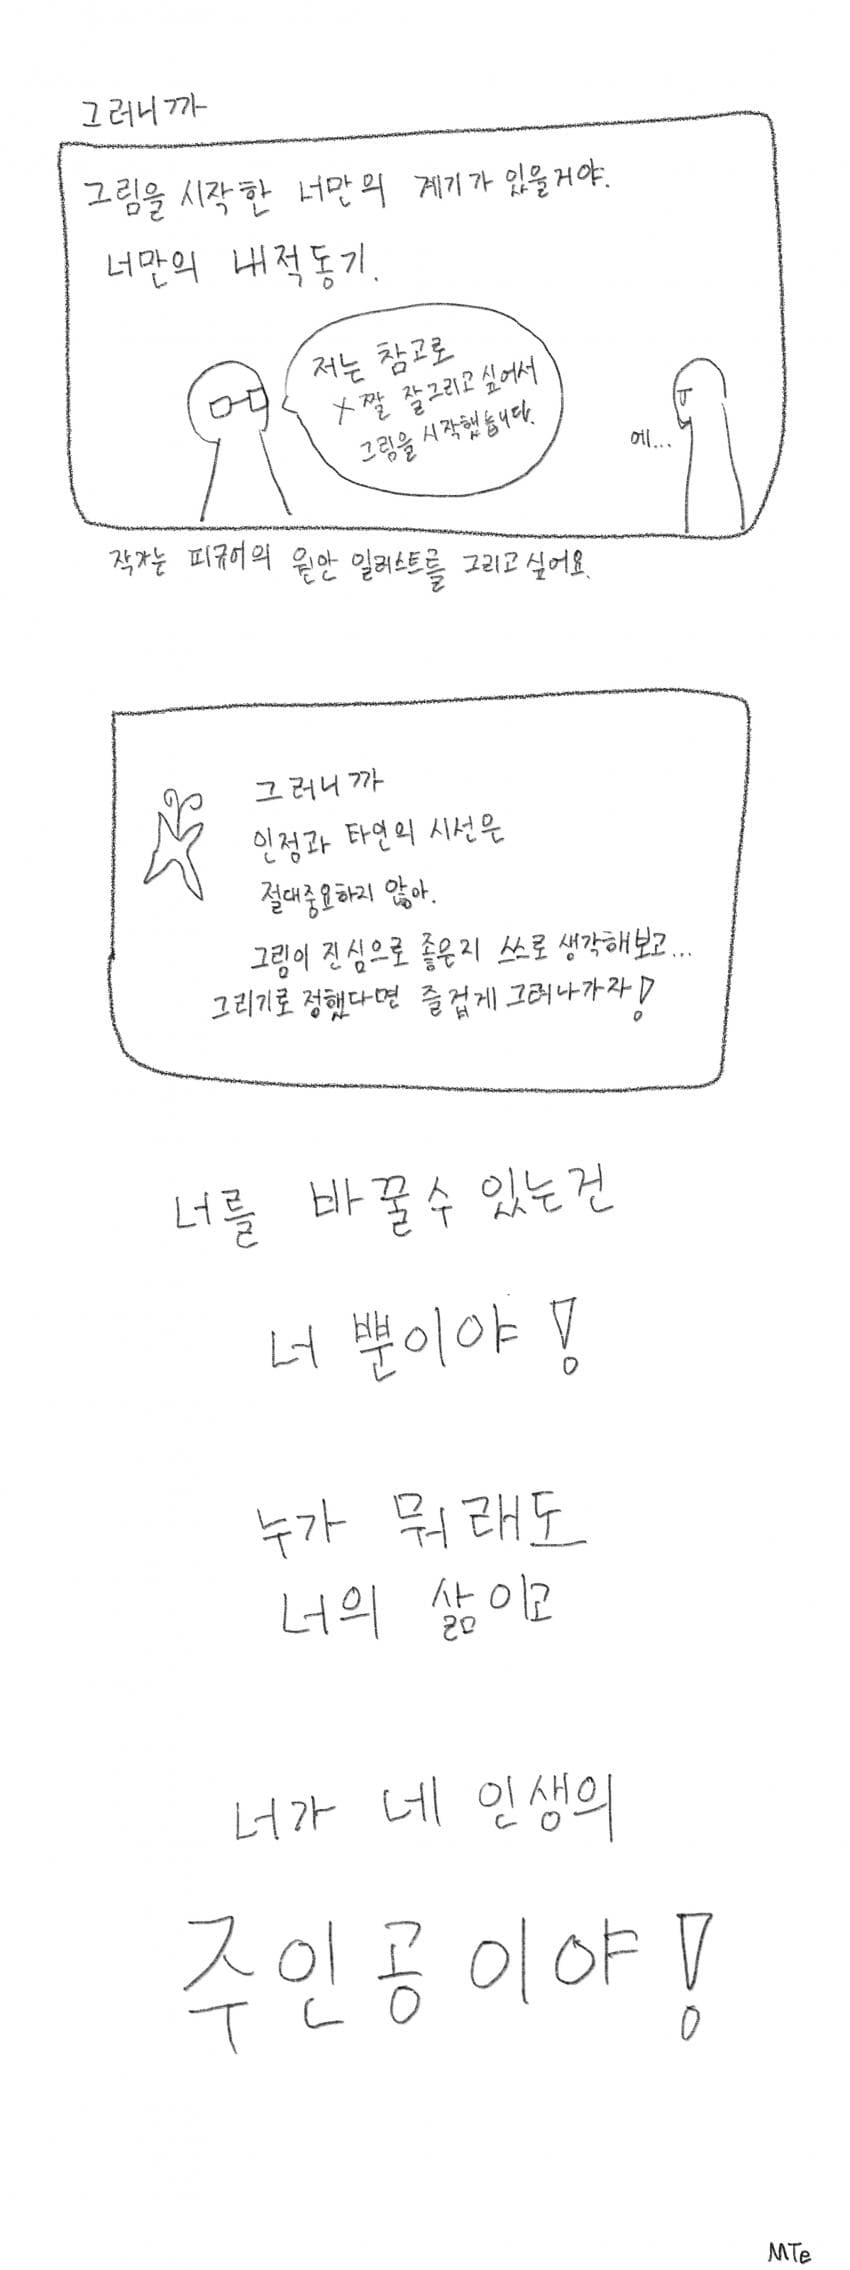 그러니까
그림을 시작한 너만의 계기가 있을거야.
너만의 내적동기.
저는 참고로
X짤 잘그리고 싶어서
그림을 시작했습니다.
에...
작가는 피규어의 원안 일러스트를 그리고싶어요.
그러니까
인정과 타인의 시선은
절대중요하지 않아.
그림이 진심으로 좋은지 쓰로 생각해보고...
그리기로 정했다면 즐겁게 그려나가자!
너를 바꿀수 있는건
너 뿐이야!
누가 뭐래도
너의 삶이고
너가 네 인생의
주인공이야!
MTe